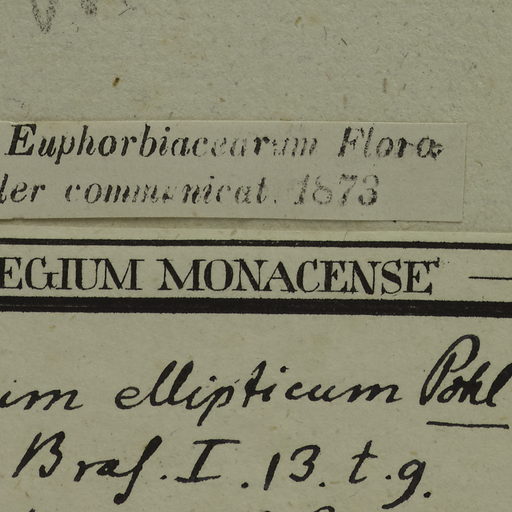 Euphorbiacearum Floræ
ler communicat. 1873
EGIUM MONACENSE
um ellipticum Pohl
Bras. I. 13. t. 9.